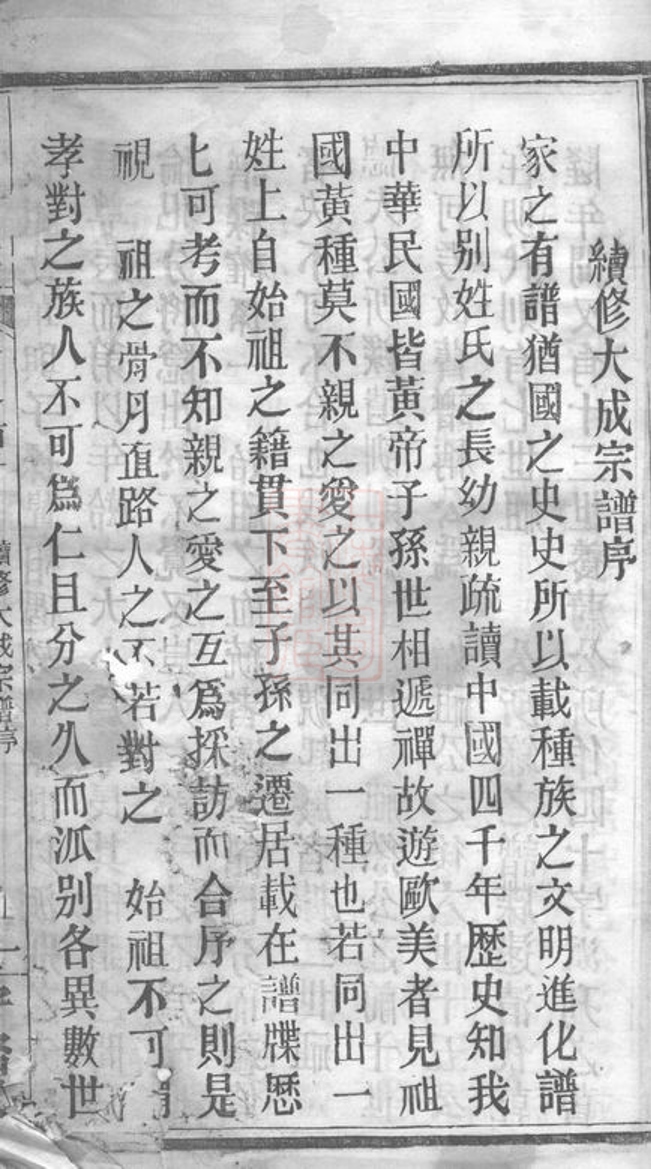 續修大成宗譜序
家之有譜猶國之史史所以載種族之文明進化譜
所以別姓氏之長幼親疏讀中國四千年歷史知我
中華民國皆黃帝子孫世相遞禪故遊歐美者見祖
國黃種莫不親之愛之以其同出一種也若同出一
姓上自始祖之籍貫下至子孫之遷居載在譜牒歷
匕可考而不知親之愛之互爲採訪而合序之則是
視 祖之骨月直路人之不若對之 始祖不可
孝對之族人不可爲仁且分之久而派別各異數世
續修大成宗譜序